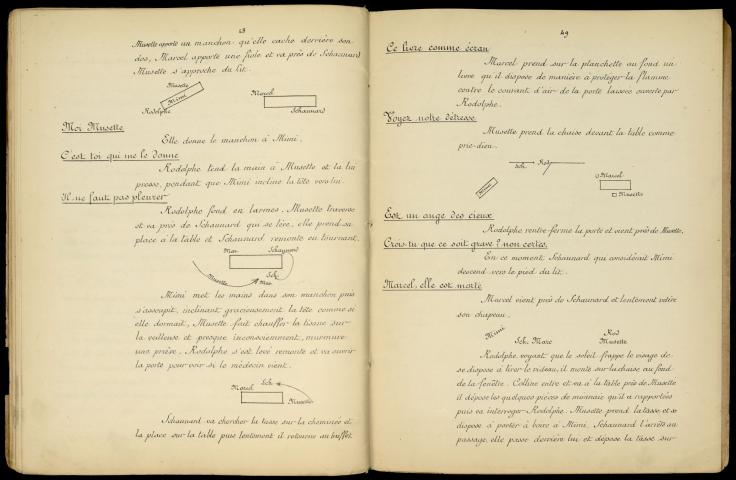 48
Musette apporte un manchon qu'elle cache derrière son
dos, Marcel apporte une fiole et va près de Schaunard
Musette s'approche du lit.
Musette
Mimi
Rodolphe
Marcel
Schaunard
Moi Musette
Elle donne le manchon à Mimi.
C'est toi qui me le donne
Rodolphe tend la main à Musette et la lui
presse, pendant que Mimi incline la tête vers lui.
Il ne faut pas pleurer
Rodolphe fond en larmes. Musette traverse
et va près de Schaunard qui se lève, elle prend sa
place à la table et Schaunard remonte en tournant.
Mar. Schaunard
Sch.
Musette Mus.
Mimi met les mains dans son manchon puis
s'assoupit, inclinant gracieusement la tête comme si
elle dormait, Musette fait chauffer la tisane sur
la veilleuse et presque inconsciemment, murmure
une prière. Rodolphe s'est levé remonte et va ouvrir
la porte pour voir si le médecin vient.
Marcel Sch.
Musette
Schaunard va chercher la tasse sur la cheminée et
la place sur la table puis lentement il retourne au buffet.
49
Ce livre comme écran
Marcel prend sur la planchette au fond un
livre qu'il dispose de manière à protéger la flamme
contre le courant d'air de la porte laissée ouverte par
Rodolphe.
Voyez notre détresse
Musette prend la chaise devant la table comme
prie-dieu.
Sch. Rod.
Mimi
Marcel
Musette
Est un ange des cieux
Rodolphe rentre ferme la porte et vient près de Musette.
Crois-tu que ce soit grave? non certes.
En ce moment, Schaunard qui considérait Mimi
descend vers le pied du lit.
Marcel, elle est morte
Marcel vient près de Schaunard et lentement retire
son chapeau.
Mimi
Sch. Marc
Rod
Musette
Rodolphe, voyant que le soleil frappe le visage de
se dispose à tirer le rideau, il monte sur la chaise au fond
de la fenêtre. Colline entre et va à la table près de Musette
il dépose les quelques pièces de monnaie qu'il a rapportées
puis va interroger Rodolphe. Musette prend la tasse et se
dispose à porter à boire à Mimi, Schaunard l'arrête au
passage, elle passe derrière lui et dépose la tasse sur